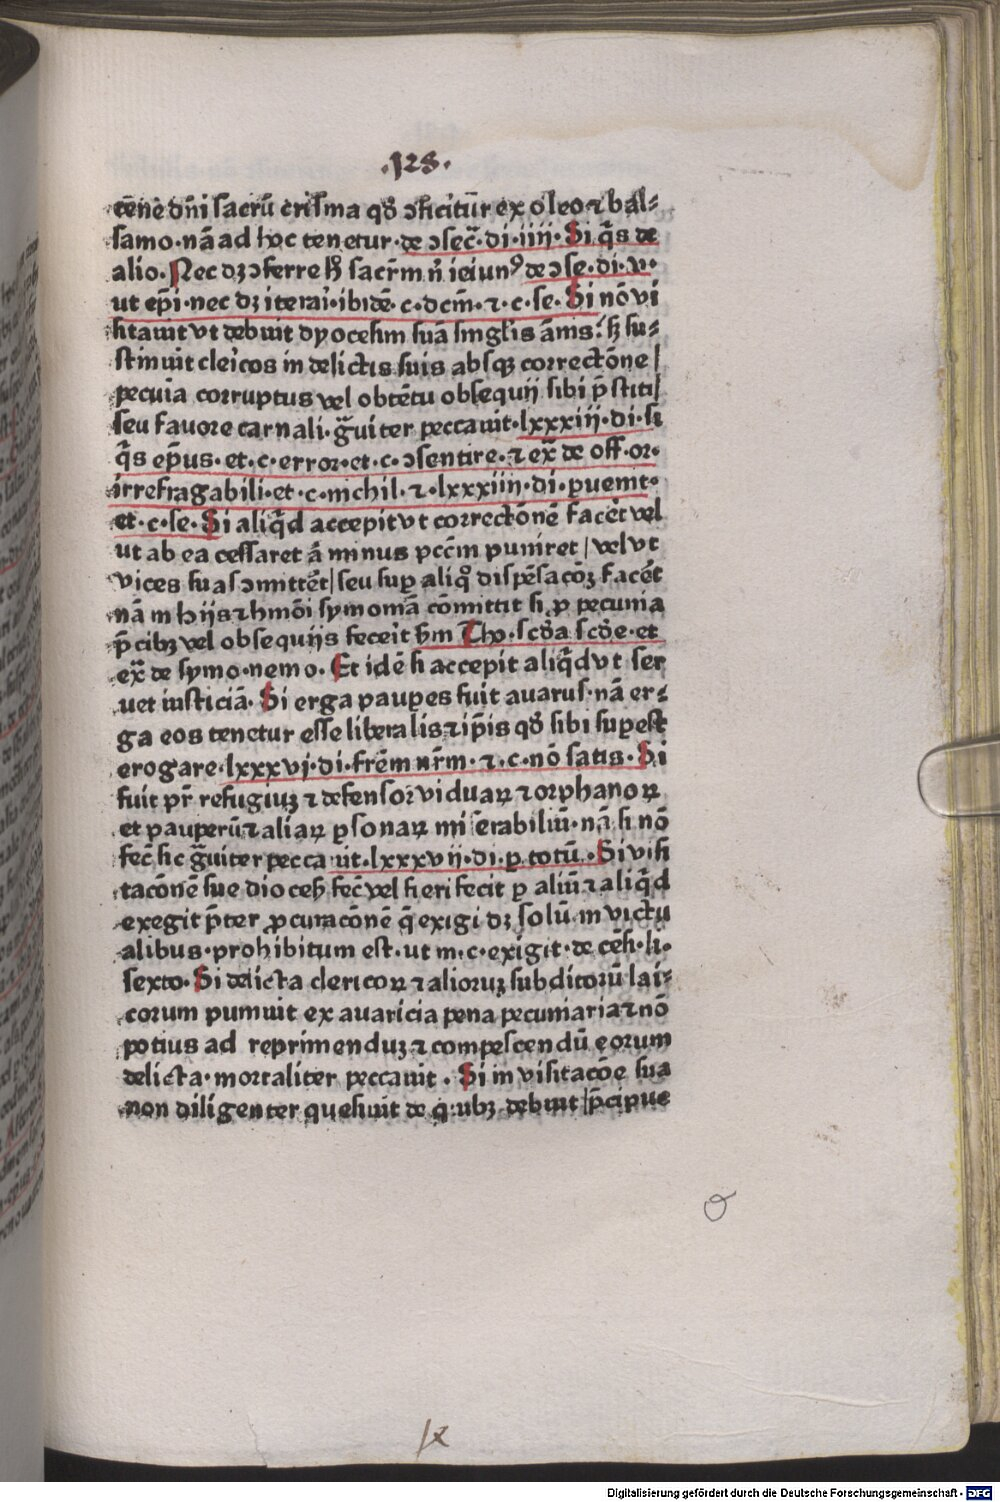 .128.
cēnē dn̄i sacrū crisma qď ꝯficitūr ex oleo ⁊ bal⸗
samo·nā ad hoc tenetur·de ꝯsec̄·di·iiii·Si q̄s de
alio·Nec dꝫ ꝯferre hꝰ sacr̄m n̄ ieiunꝰ de ꝯse·di·v·
ut ep̄i·nec dꝫ iterari·ibidē·c·dcm̄·⁊·c·se·Si nō vi
sitauit vt debuit dyocesim suā singl̓is ām̄s·ꝫ su⸗
stinuit clericos in delictis suis absqꝫ correctōne/
pecuīa corruptus vel obtētu obsequij sibi p̄stiti/
seu fauore carnali·g̈uiter peccauit·lxxxiij·di·si
q̄s ep̄us·et·c·error·et·c·ꝯsentire·⁊ ex̄ de off·or·
irrefragabili·et·c·nichil·⁊·lxxxiiij·di·ꝑuenit·
et·c·se·Si aliq̄d accepit vt correctōnē facet vel
ut ab ea cessaret ā minus pccm̄ puniret/vel vt
vices suas ꝯmittēt/seu suꝑ aliq̊ dispēsacōꝫ facēt
nā in hijs ⁊ hmōi symoniā cōmittit si ꝓ pecunia
p̄cibꝫ vel obsequijs fecerit ẜm Tho·scďa scďe·et
ex̄ de symo·nemo·Et idē si accepit aliq̄d vt ser
uet iusticiā·Si erga pauꝑes fuit auarus·nā er⸗
ga eos tenetur esse liberalis ⁊ ip̄is qď sibi suꝑest
erogare·lxxxvj·di·frēm nr̄m·⁊·c·nō satis·Si
fuit pr̄ refugiuꝫ ⁊ defensor viduaꝝ ⁊ orphanoꝝ
et pauperū ⁊ aliaꝝ ꝑsonaꝝ miserabiliū·nā si nō
fec̄ sic g̈uiter peccauit·lxxxvij·di·ꝑ totū·Si visi
tacōnē sue dioces̄ fec̄ vel fieri fecit ꝑ aliū ⁊ aliq̄d
exegit p̄ter ꝓcuracōnē q̄ exigi dꝫ solū in victu
alibus·prohibitum est·ut in·c·exigit·de cēs̄·li·
sexto·Si delicta clericoꝝ ⁊ alioruꝫ subditorū lai⸗
corum puniuit ex auaricia pena pecuniaria ⁊ nō
potius ad reprimenduꝫ ⁊ compescendū eorum
delicta·mortaliter peccauit·Si in visitacōe sua
non diligenter quesiuit de q̄ibꝫ debuit/p̄cipue
Digitalisierung gefördert durch die Deutsche Forschungsgemeinschaft - DFG